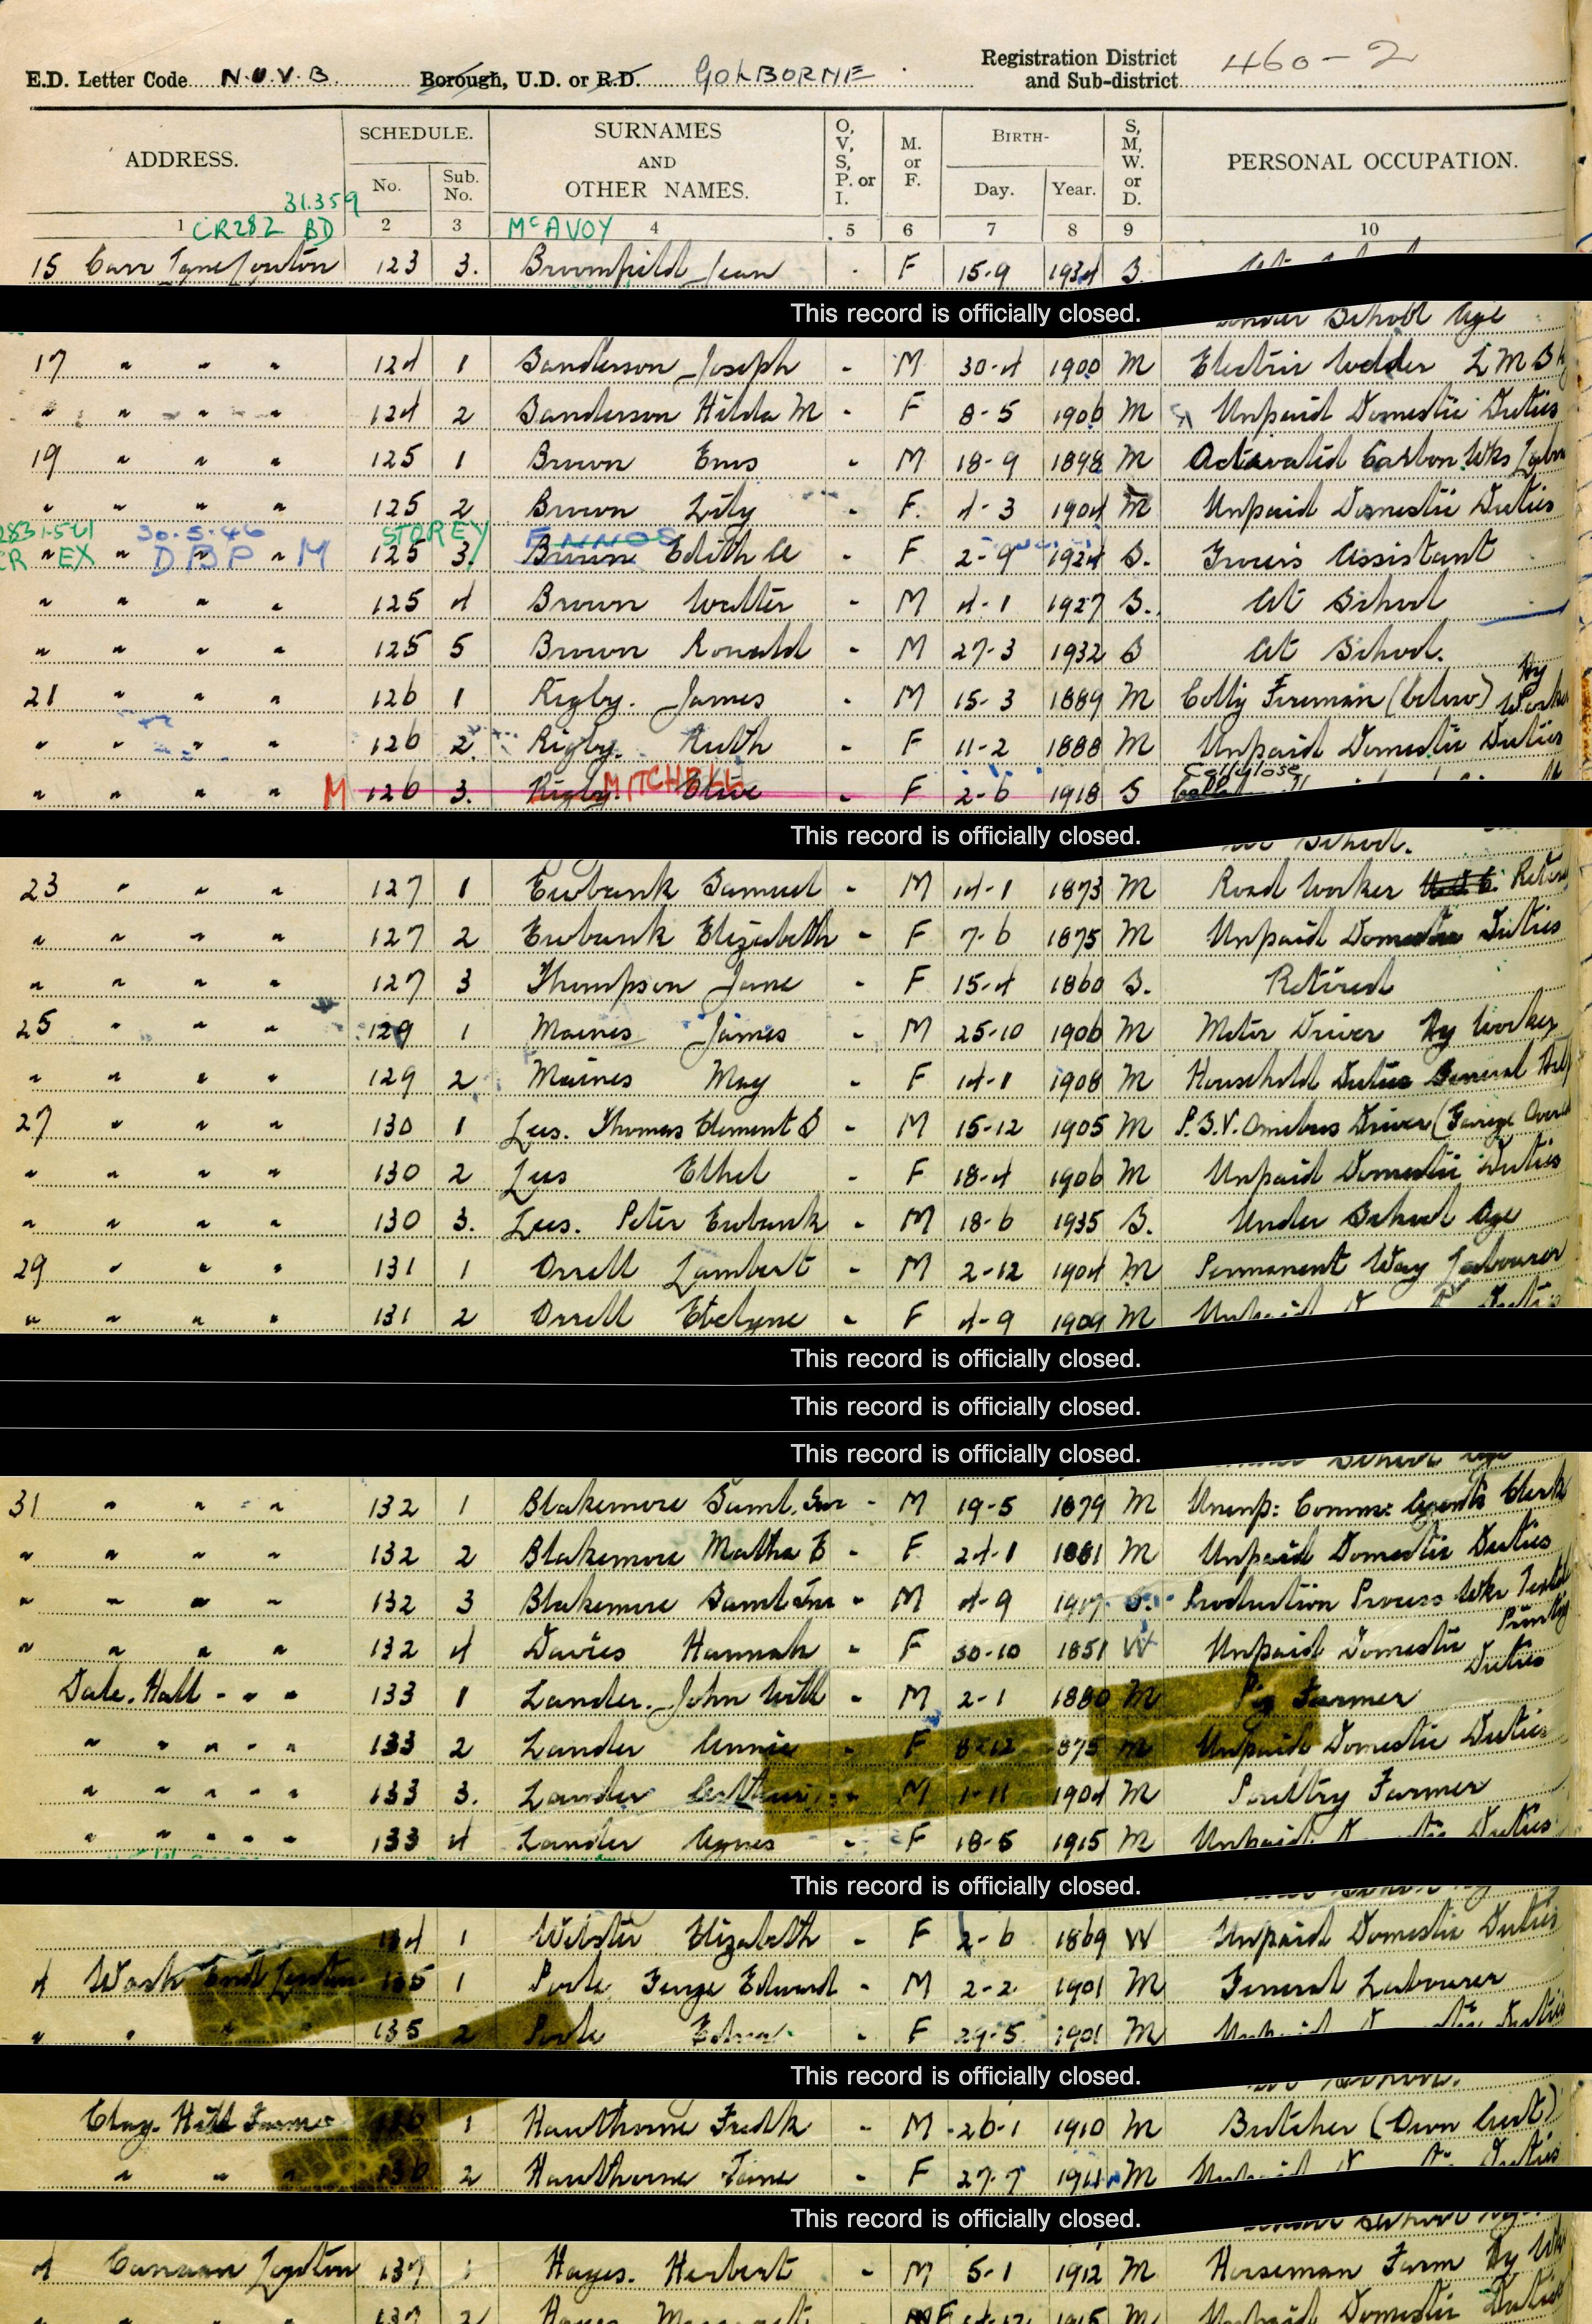 E.D. Letter Code N.U.V.B. Borough, U.D. or R.D. GOLBORNE Registration District and Sub-district 460-2
ADDRESS. SCHEDULE. No. Sub. No. SURNAMES AND OTHER NAMES. O, V, S, P. or I. M. or F. BIRTH- Day. Year. S, M, W. or D. PERSONAL OCCUPATION.
31.359
1 CR282 BD 2 3 McAVOY 4 5 6 7 8 9 10
15 Carr Lane Lowton 123 3. Broomfield Jean . F 15-9 1934 S.
This record is officially closed.
Under School Age
17 " " " 124 1 Sanderson Joseph - M 30-4 1900 M Electric Welder L M S
" " " " 124 2 Sanderson Hilda M - F 8-5 1906 M Unpaid Domestic Duties
19 " " " 125 1 Brown Enos - M 18-9 1898 M Activated Carbon Wks
" " " " 125 2 Brown Lily - F. 4-3 1904 M Unpaid Domestic Duties
30.5.46 STOREY ENNOS
CR EX DBP M 125 3. Brown Edith A - F 2-9 1924 S. Grocers Assistant
" " " " 125 4 Brown Walter - M 4-1 1927 S. At School
" " " " 125 5 Brown Ronald - M 27-3 1932 S At School.
21 " " " 126 1 Rigby. James - M 15-3 1889 M Colly Fireman (below) Hy Worker
" " " " 126 2. Rigby. Ruth - F 11-2 1888 M Unpaid Domestic Duties
" " " " M 126 3. Rigby MITCHELL Olive - F 2-6 1918 S Cellulose
This record is officially closed.
At School.
23 " " " 127 1 Ewbank Samuel - M 14-1 1873 M Road Worker
" " " " 127 2 Ewbank Elizabeth - F 7-6 1875 M Unpaid Domestic Duties
" " " " 127 3 Thompson Jane - F 15-4 1860 S. Retired
25 " " " 129 1 Maines James - M 25-10 1906 M Motor Driver Hy Worker
" " " " 129 2 Maines May - F 14-1 1908 M Household Duties General
27 " " " 130 1 Lees. Thomas Clement S - M 15-12 1905 M P.S.V. Omnibus Driver (Garage
" " " " 130 2 Lees Ethel - F 18-4 1906 M Unpaid Domestic Duties
" " " " 130 3. Lees. Peter Ewbank - M 18-6 1935 S. Under School Age
29 " " " 131 1 Orrell Lambert - M 2-12 1904 M Permanent Way Labourer
" " " " 131 2 Orrell Etelyne - F 4-9 1909 M Unpaid Duties
This record is officially closed.
This record is officially closed.
This record is officially closed.
31 " " " 132 1 Blakemore Saml. Snr - M 19-5 1879 M Unemp: Comm: Agents Clerk
" " " " 132 2 Blakemore Matha E - F 24-1 1881 M Unpaid Domestic Duties
" " " " 132 3 Blakemore Saml Jnr - M 4-9 1907 S. Production Process Wkr Textile Printing
" " " " 132 4 Davies Hannah - F 30-10 1851 W Unpaid Domestic Duties
Date. Hall - " " 133 1 Lander. John Will - M 2-1 1880 M Pig Farmer
" " " " " 133 2 Lander Annie - F 8-12 1875 M Unpaid Domestic Duties
" " " " " 133 3. Lander Arthur - M 1-11 1904 M Poultry Farmer
" " " " " 133 4 Lander Agnes - F 18-5 1915 M Unpaid Duties
This record is officially closed.
134 1 Webster Elizabeth - F 2-6 1869 W Unpaid Domestic Duties
4 Wash End Lowton 135 1 Poole George Edward - M 2-2 1901 M General Labourer
" " " 135 2 Poole Edna - F 29-5 1901 M Duties
This record is officially closed.
At School.
Clay. Hill Farm 136 1 Hawthorne Fredk - M 26-1 1910 M Butcher (Own Acct)
" " " 136 2 Hawthorne Jane - F 27-7 1911 M Unpaid Duties
This record is officially closed.
4 Canaan Lowton 137 1 Hayes. Herbert - M 5-1 1912 M Horseman Farm Hy Wkr
137 2 Hayes Margaret F 1915 M Unpaid Domestic Duties